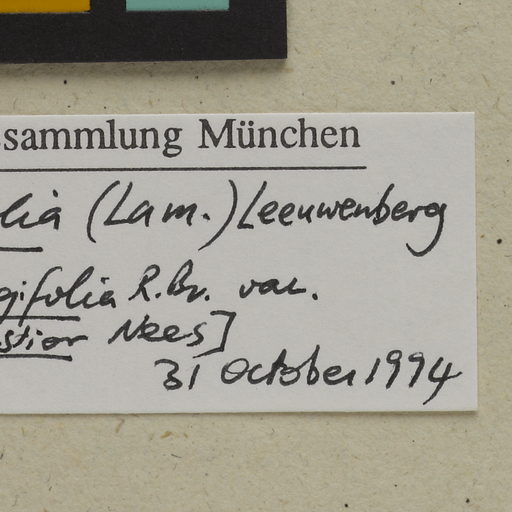 sammlung München
lia (Lam.) Leeuwenberg
gifolia R.Br. var.
stior Nees]
31 October 1994